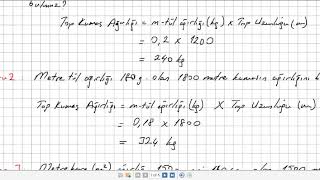 bulunuz?
Top Kumaş Ağırlığı = m-tül ağırlığı (kg) x Top Uzunluğu (m)
= 0,2 x 1200
= 240 kg
2. Metre tül ağırlığı 180g. olan 1800 metre kumaşın ağırlığını
Top Kumaş Ağırlığı = m-tül ağırlığı (kg) X Top Uzunluğu (m)
= 0,18 x 1800
= 324 kg